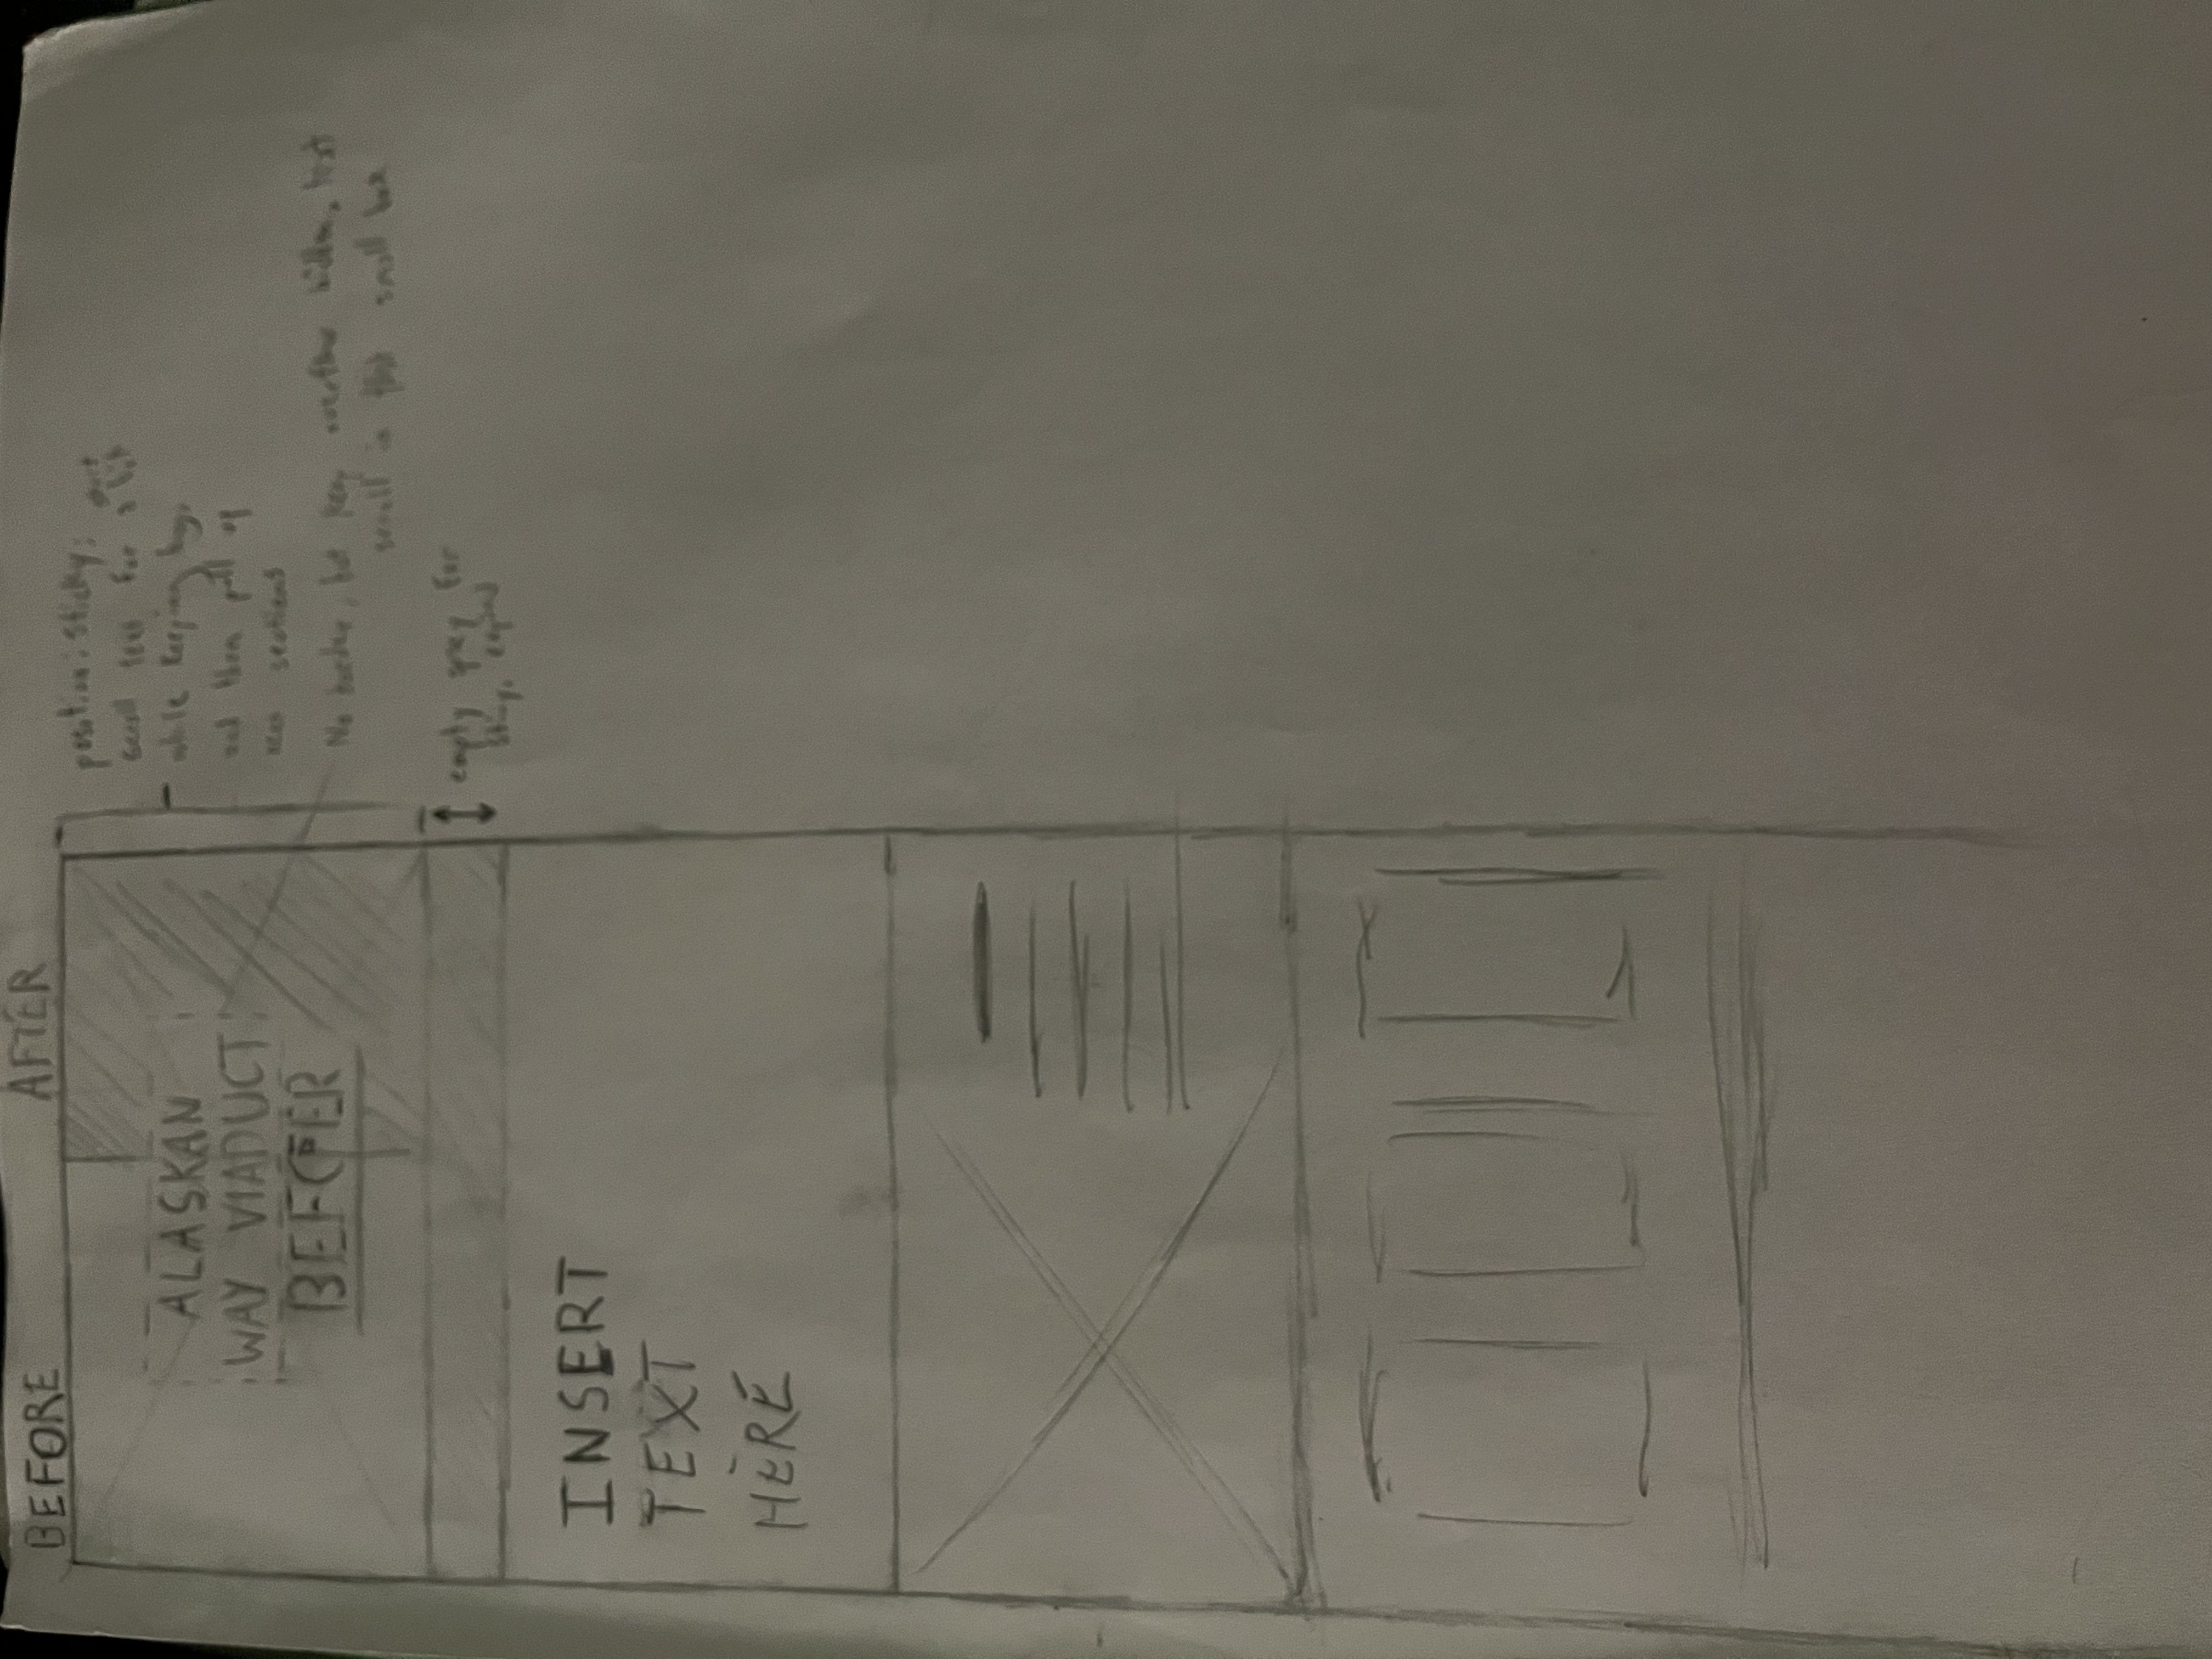 BEFORE AFTER
ALASKAN
WAY VIADUCT
position: sticky;
scroll text for a bit
while keeping
and then pull up
sections
No border, but keep overflow hidden, text
scroll in this small box
empty for
INSERT
TEXT
HERE